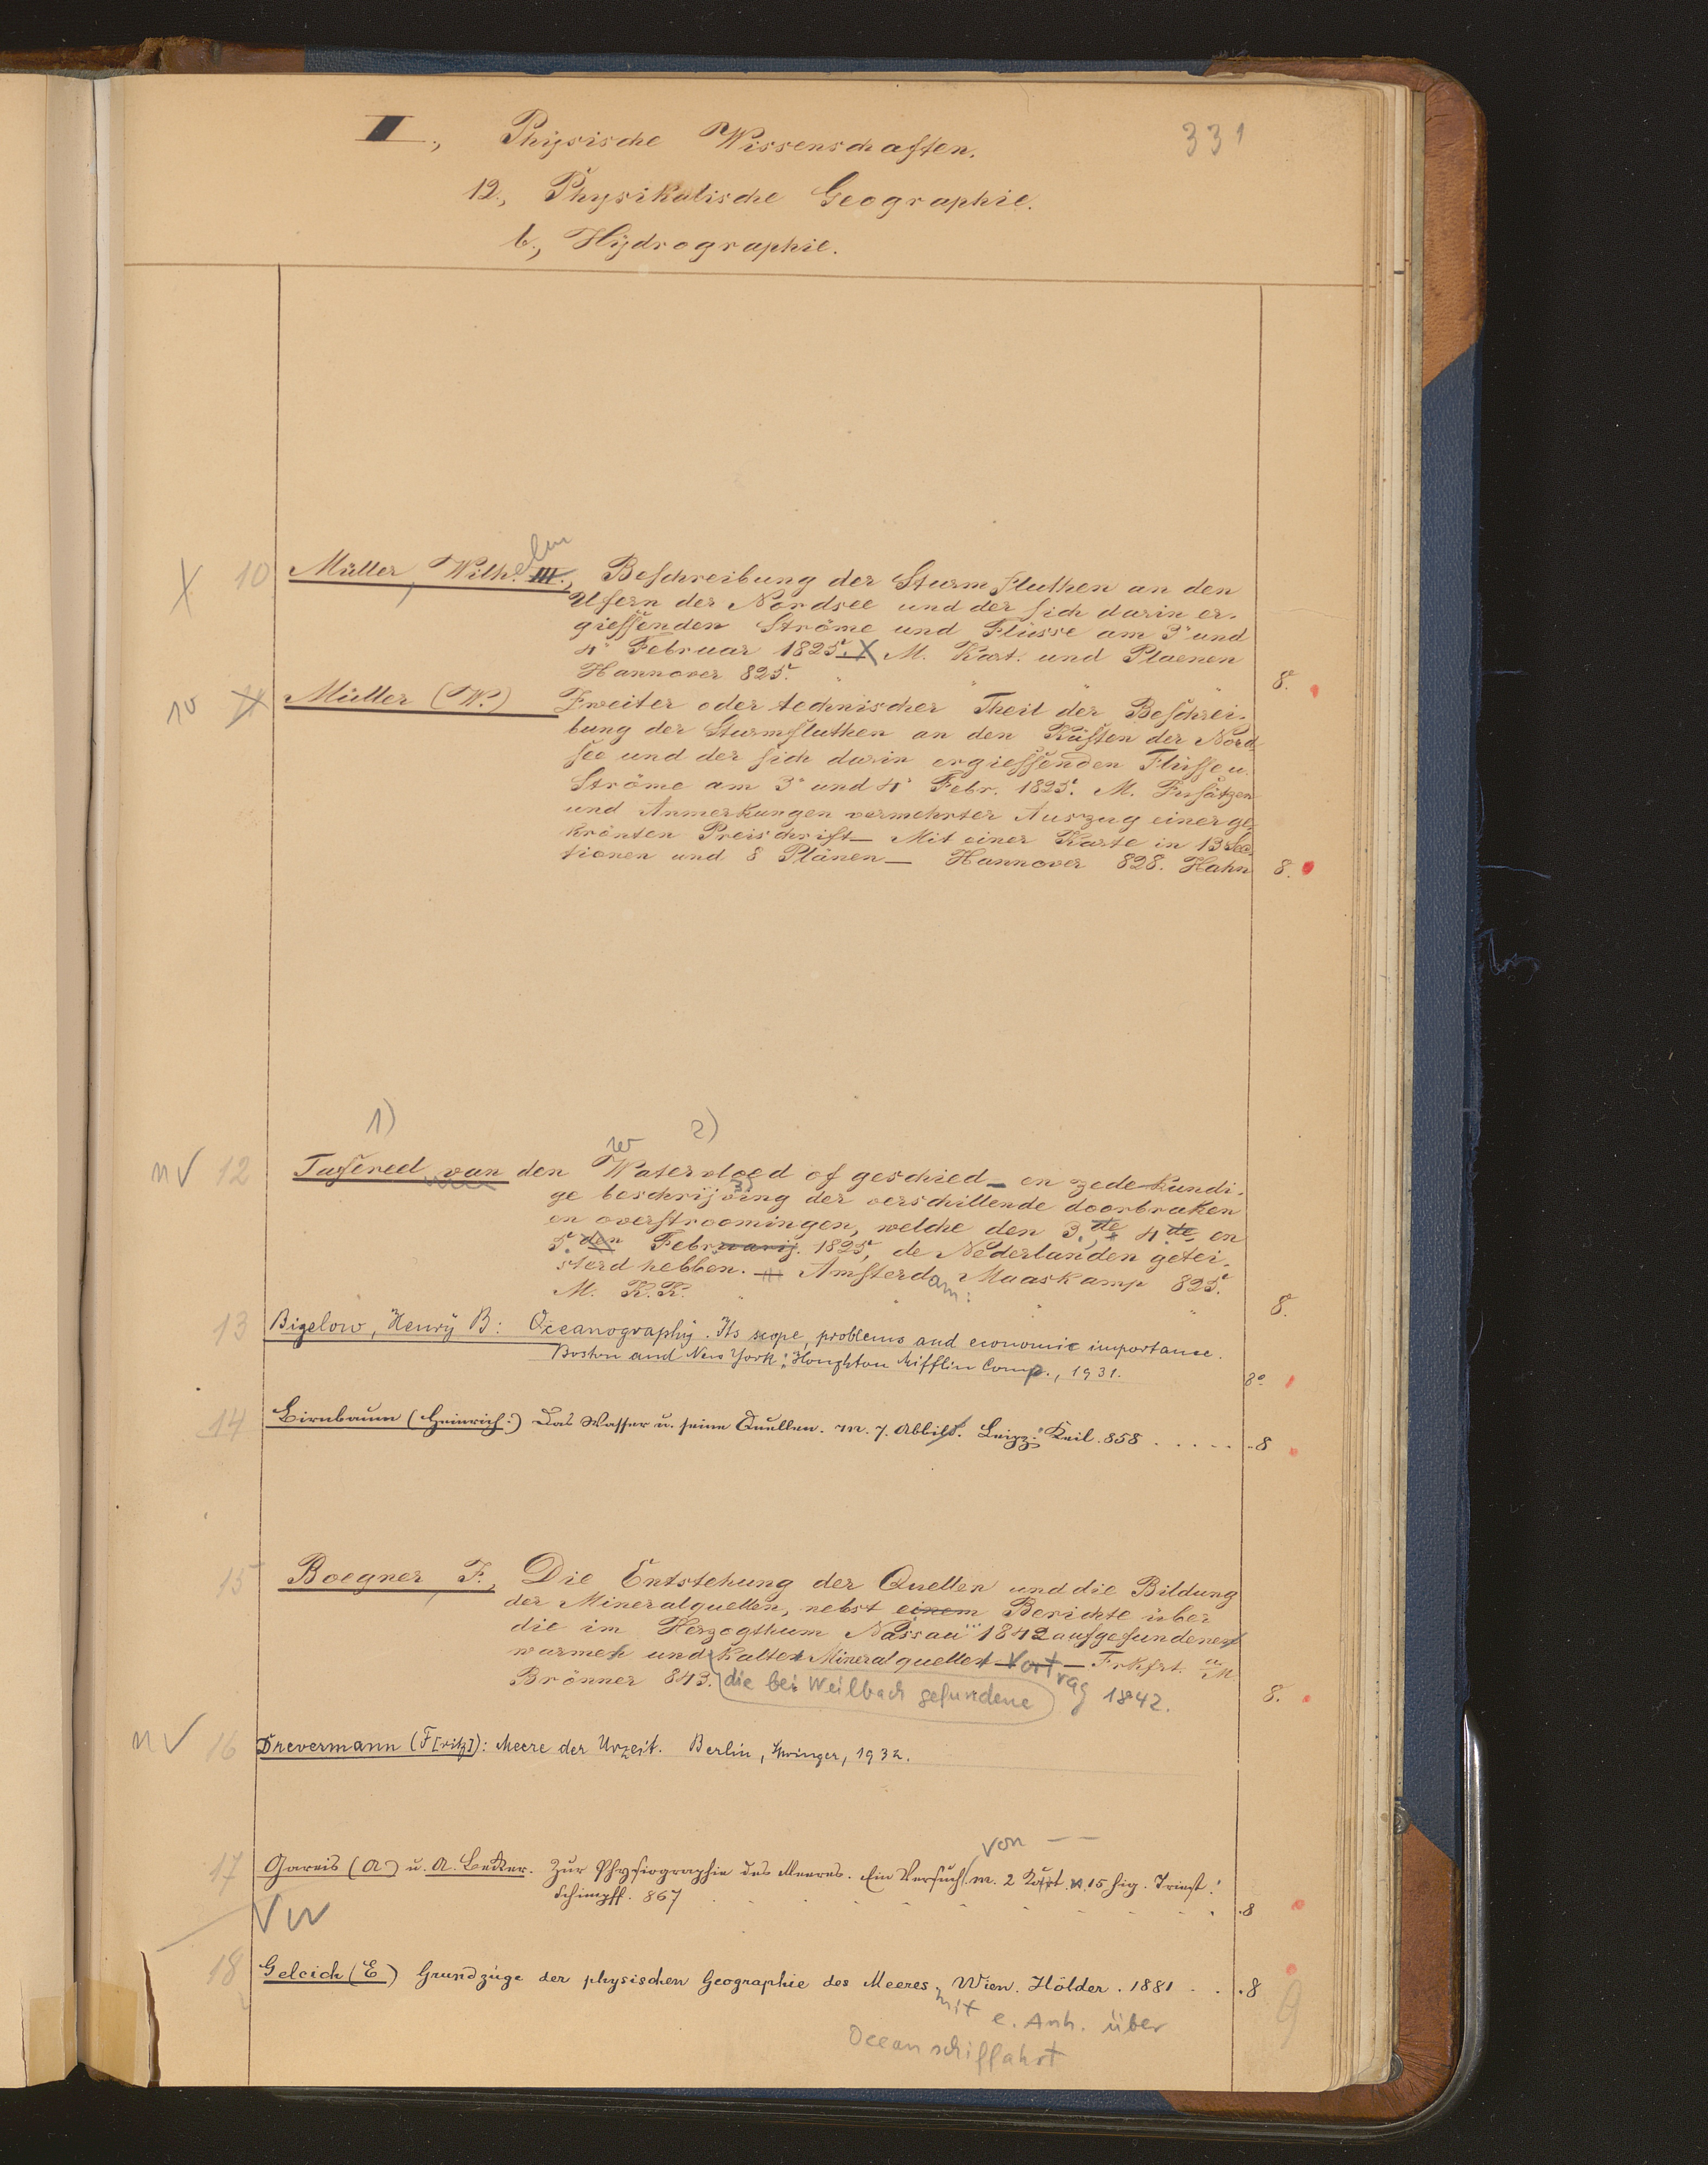 II., Physische Wissenschaften. 331
12., Physikalische Geographie.
b., Hydrographie.
X 10 Müller, Wilh.elm III., Beschreibung der Sturmfluthen an den
Ufern der Nordsee und der sich darin er-
giessenden Ströme und Flüsse am 3. und
4. Februar 1825. X M. Kart. und Plaenen
Hannover 825. 8.
10 11 Müller (W.) Zweiter oder technischer Theil der Beschrei-
bung der Sturmfluthen an den Küsten der Nord-
see und der sich darin ergiessenden Flüsse u.
Ströme am 3. und 4. Febr. 1825. M. Zusätzen
und Anmerkungen vermehrter Auszug einer ge-
krönten Preisschrift – Mit einer Karte in 13 Sec-
tionen und 8 Plänen – Hannover 828. Hahn 8.
1) 2)
n √ 12 Tafereel van den Watervloed of geschied- en zedekundi-
ge beschrijving der verschillende doorbraken
en overstroomingen, welche den 3.de, 4.de en
5.den Februarij. 1825, de Nederlanden getei-
sterd hebben. – Amsterdam: Maaskamp 825.
M. K.K. 8.
13 Bigelow, Henry B: Oceanography. Its scope, problems and economic importance.
Boston and New York: Houghton Mifflin Comp., 1931. 8°
14 Birnbaum (Heinrich.) Das Wasser u. seine Quellen. M. 7. Abbild. Leipz: Keil. 858 . . . . . 8
15 Boegner, F., Die Entstehung der Quellen und die Bildung
der Mineralquellen, nebst einem Berichte über
die im Herzogthum Nassau 1842 aufgefundenen
warmen und kalten Mineralquellen Vortrag – Frkfrt. a M.
Brönner 843. die bei Weilbach gefundene 1842. 8.
n √ 16 Drevermann (F[ritz]): Meere der Urzeit. Berlin, Springer, 1932.
von — —
17 Gareis (A) u. A. Becker. Zur Physiographie des Meeres. Ein Versuch m. 2 Kart. u. 15 Fig. Triest:
Schimpff. 867 . 8
18 Gelcich (E) Grundzüge der physischen Geographie des Meeres. Wien. Hölder. 1881 . . . 8
mit e. Anh. über
Oceanschiffahrt